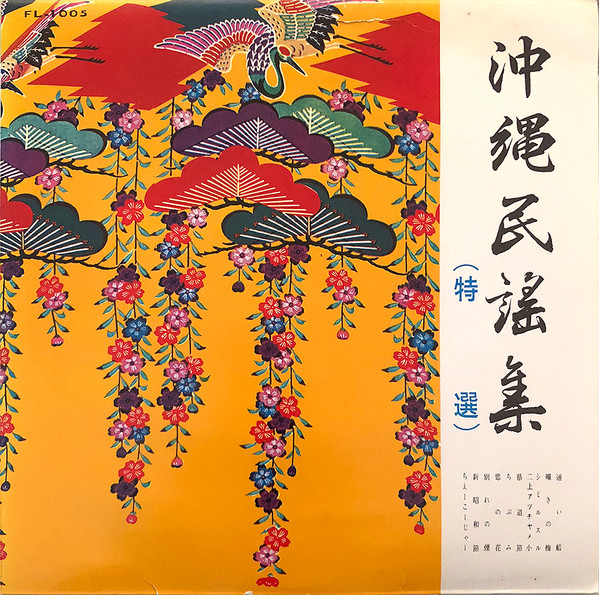 FL-1005
沖縄民謡集
(特選)
通い船
嘆きの梅
シミルスル
二上アツチヤメ小
県道節
ちぶみ
恋の花
別れの煙
新昭和節
ちぇーこーじゃー